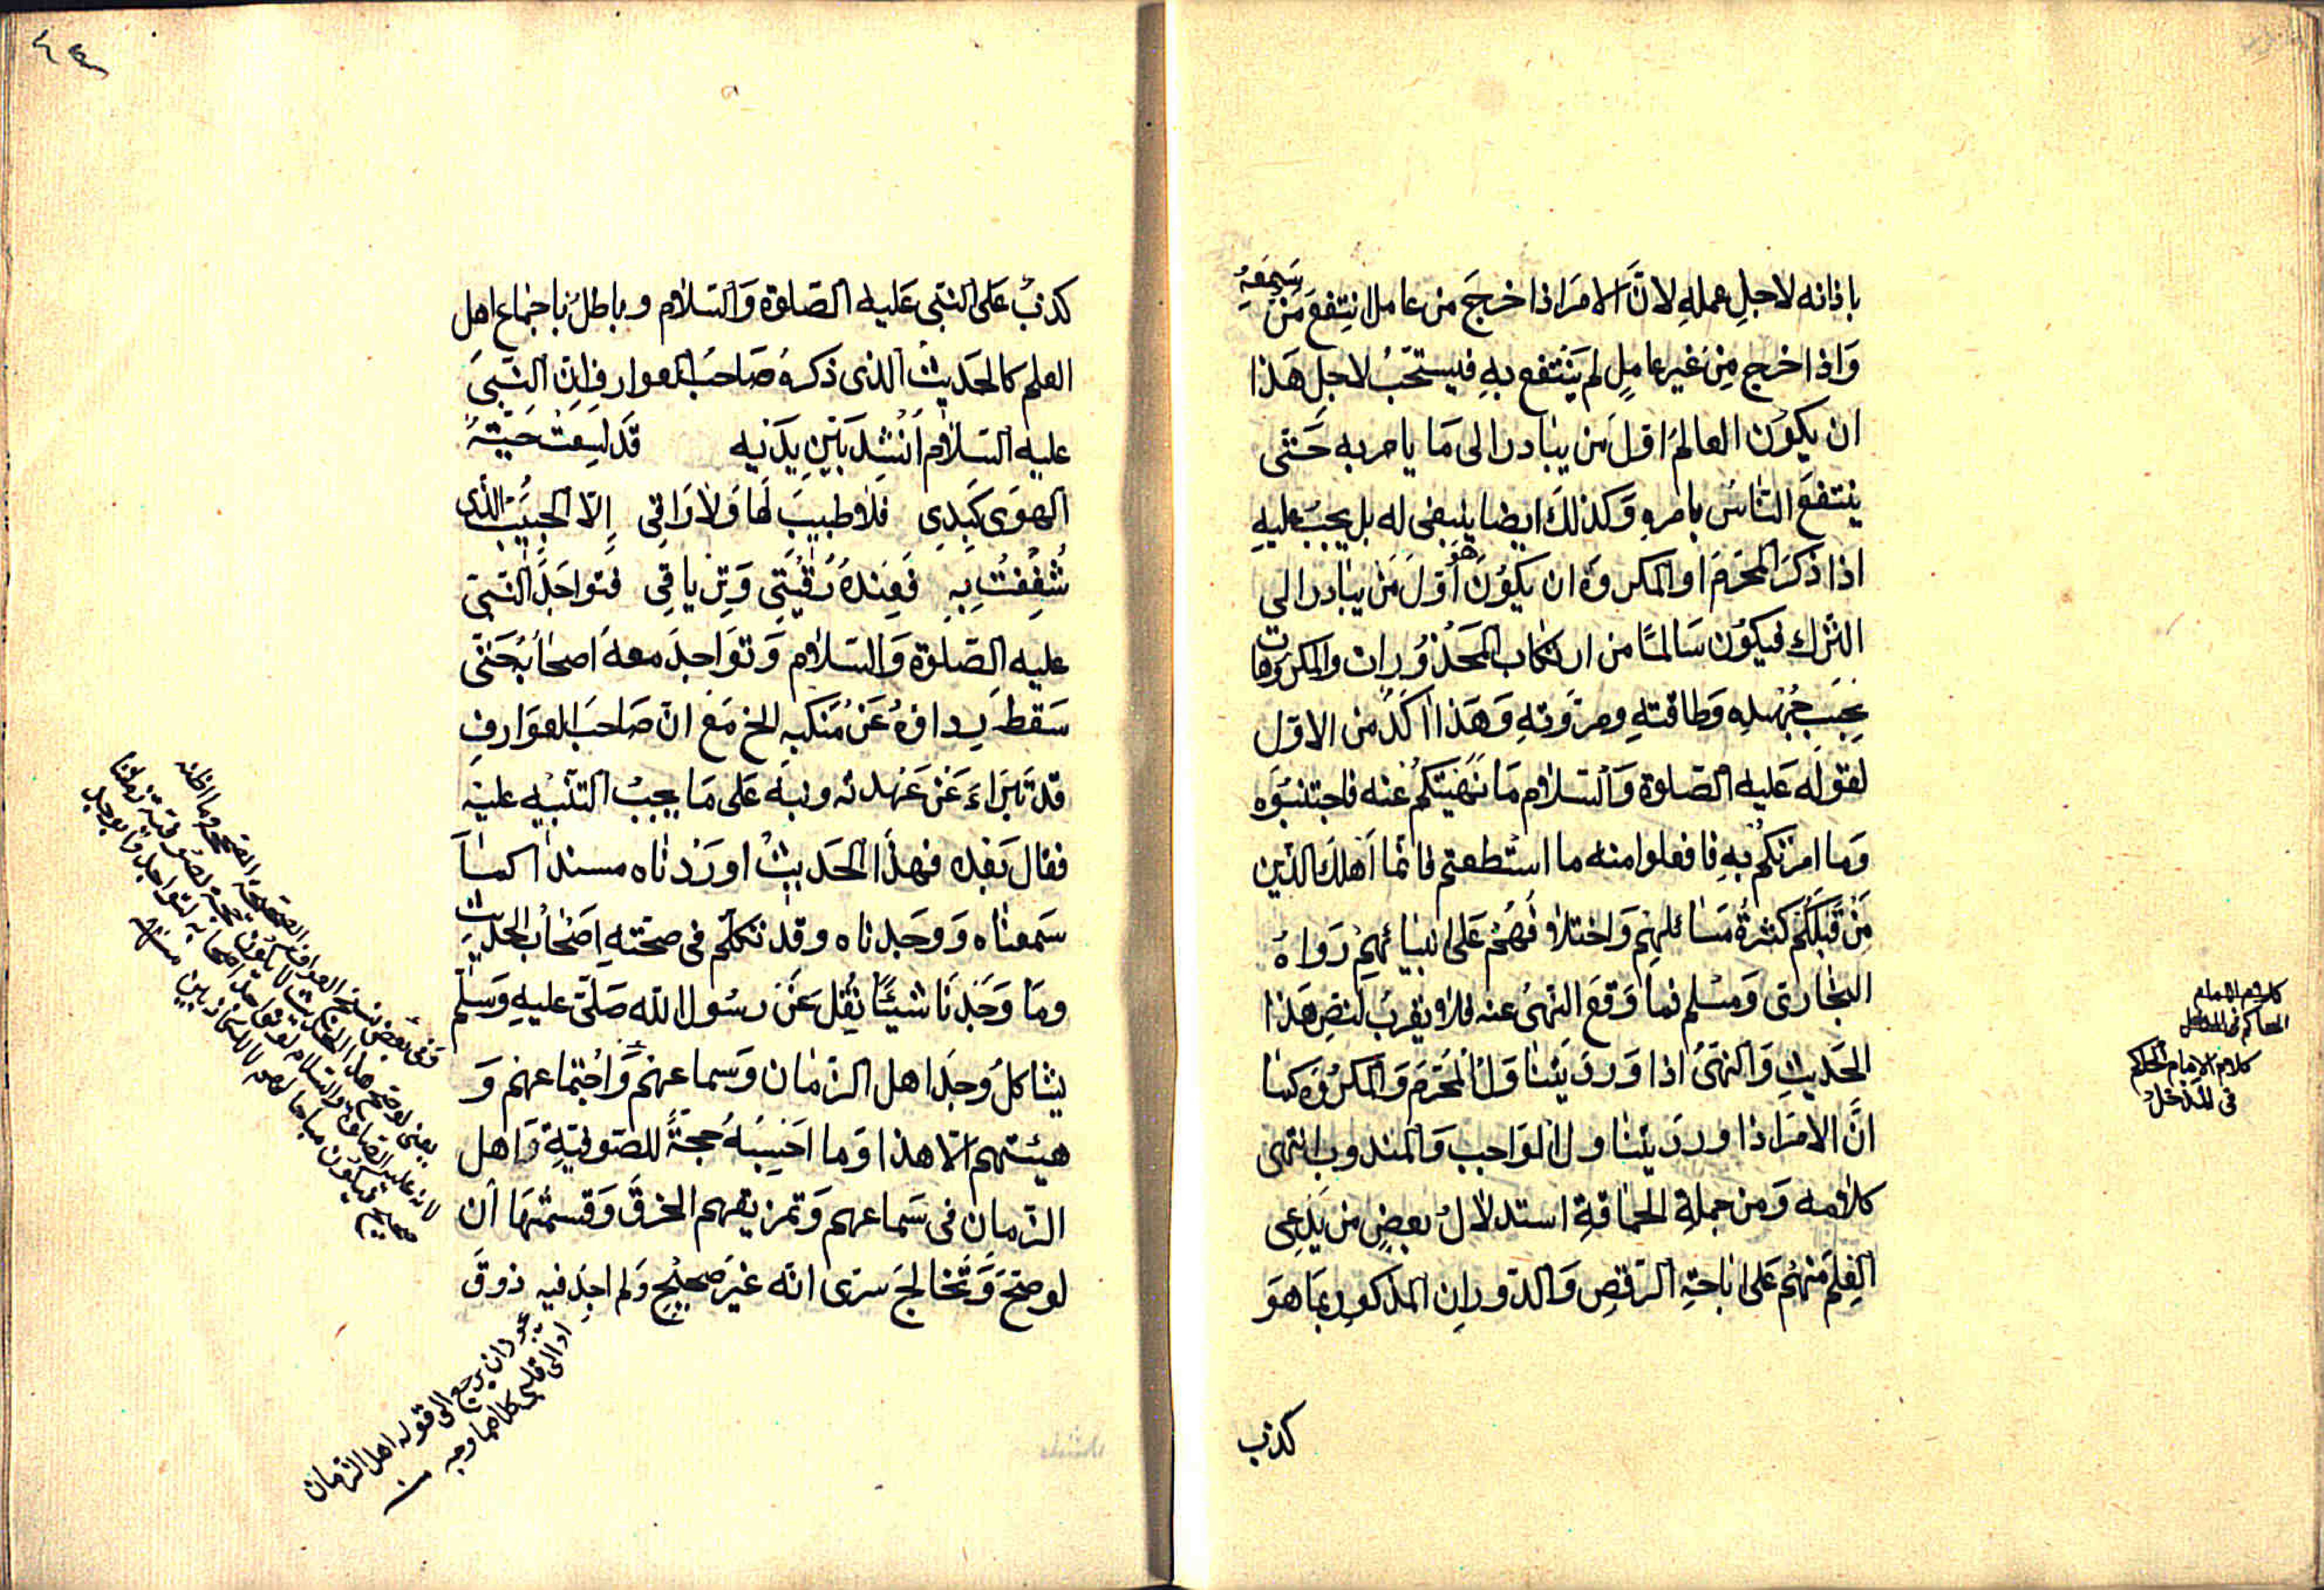 باذانه لاجلِ عملهِ لانَّ الامرَ اذا خرجَ من عامل انتِفعَ مَنْ سَمِعَهُ
وَاذا خرج مِنْ غيرِ عامِلٍ لم يَنْتفع بهِ فيستحَبُّ لاجلِ هَذا
ان يكوُن العالمُ اوّلَ من يبٰادر الى مَا يامر به حَتّٰى
ينتفعَ النّاسُ بامرهِ وَكذلكَ ايضا ينبغى له بل يجبُ عليهِ
اذا ذكرَ المحرّمَ او المكروهَ ان يكوُنَ هُوَ أوّلَ مَن يبٰادر الى
الترك فيكوُن سَالمًا من ارتكاب المحذوُرات والمكروهات
بِحَسبِ جُهْدِه وَطاقتهِ ومرُوّتهِ وَهَذا اٰكدُ من الاوّل
لقوله عَليه الصّلوة وَالسّلام مَا نَهَيتكُم عنه فاجتنبُوه
وَما امرتكُم بهِ فافعلوا منه ما استطعتم فانّما اَهلكَ الذين
مِنْ قَبْلكُم كثرةُ مَسائلهِم وَاختلافُهُمْ عَلى انبيائهِم رَواهُ
البخٰارى وَمسْلم فما وَقعَ النهىُ عنه فلا يقربُ لنصِ هَذا
الحَديثِ وَالنهىُ اذا وَردَ يتنٰاوَلُ المحرّمَ وَالمكرُوهَ كمٰا
انَّ الامرَ اذا وردَ يتنٰاول الوَاجبَ وَالمندوبَ انتهى
كلامه وَمن جملةِ الحماقةِ استدلالُ بعضٍ من يَدّعِى
العِلمَ منهُم عَلى اباحةِ الرّقصِ وَالدّورانِ المذكورِ بمَا هوَ
كذب
كلام الامام
الحاكم فى المدخل
كلام الامام الحاكم
فى المدْخل
كذبٌ عَلى النبّى عَليه الصّلوة وَالسّلام وباطلٌ باجماع اهل
العلم كالحَديث الذى ذكرهُ صَاحبُ العوارفِ انّ النبّىَ
عليه السّلام اُنْشِدَ بَيْن يدَيه قَد لَسِعَتْ حَيّةُ
الهَوَى كَبِدِى فَلا طبيبَ لهَا وَلا رَاقِى اِلّا الحبِيبُ الذى
شُغِفْتُ بِهِ فَعِندَهُ رُقْيَتِى وَتِرْياقِى فَتَواجَدَ النّبىّ
عليه الصّلوة وَالسّلام وَتَوَاجدَ معهُ اَصحابُهُ حَتّى
سَقطَ رِداؤهُ عَنْ مَنكبهِ الخ مَع انّ صَاحبَ العوَارفِ
قد تَبَرّاءَ عَنْ عَهدته ونبه عَلى مَا يجبُ التنْبيه عليه
فقالَ بَعْده فهذَا الحَديثُ اورَدْناه مسندًا كمَا
سَمعناه وَوَجَدناه وقد تكلّم فى صحّتهِ اَصْحٰابُ الحديث
ومَا وَجَدنَا شيئًا نُقِلَ عَن رسُول الله صَلّى عليهِ وَسَلّم
يشاكلُ وُجدَ اهل الزّمان وَسماعهم وَاجْتماعهم وَ
هيئتهم الّا هذا وَما احَسِبَهُ حُجّةً للصّوفيّةِ وَاهل
الزّمان فى سَماعهم وَتمزيقهم الخرقَ وَقسمتهَا اَن
لو صَحَّ وَتَخالجَ سرّى انّه غيرَ صحيْحٍ وَلم اجِد فيه ذوقَ
وَفى بعض نسخ العوارف
يعنى لو صحّ هذا الحديث لا يكون حجّة لصوفيّة زماننا
لانّه عليه الصّلوة والسّلام
فيكون مباحا لهم لا للكاذبين منه
يجوز ان يرجع الى قوله اهل الزّمان
او الى قلبى كلاهما وجه منه